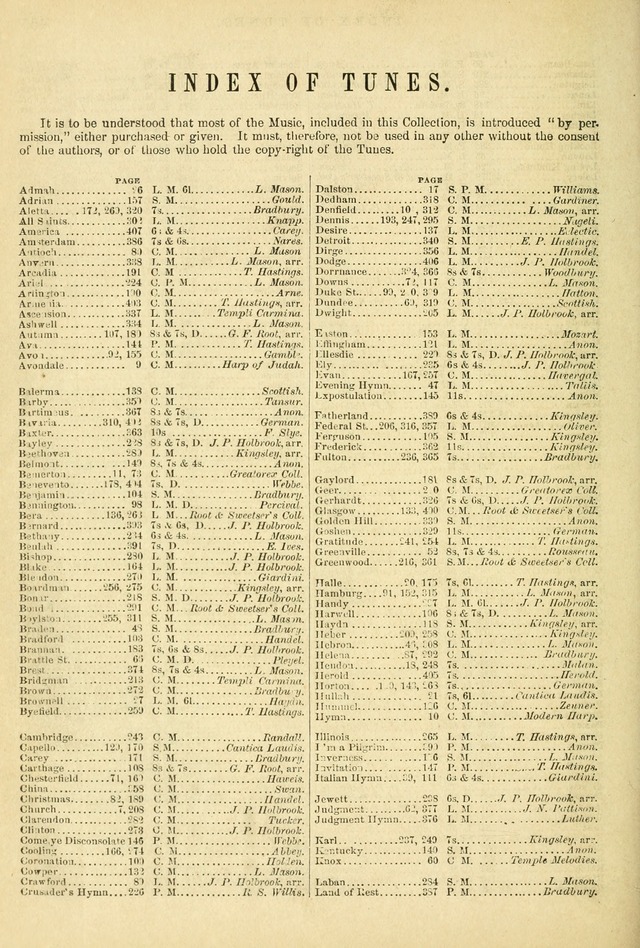 INDEX OF TUNES.
It is to be understood that most of the Music, included in this Collection, is introduced "by per-
mission," either purchased or given. It must, therefore, not be used in any other without the consent
of the authors, or of those who hold the copy-right of the Tunes.
PAGE
Admah 96 L. M. 6l. L. Mason.
Adrian 157 S. M. Gould.
Aletta 172, 269, 320 7s. Bradbury.
All Saints 302 L. M. Knapp.
America 407 6s & 4s. Carey.
Amsterdam 386 7s & 6s. Nares.
Antioch 80 C. M. L. Mason
Anvern 338 L. M. L. Mason, arr.
Arcadia 191 C. M. T. Hastings.
Ariel 224 C. P. M. L. Mason.
Arlington 190 C. M. Arne.
Armenia 403 C. M. T. Hastings, arr.
Ascension 337 L. M. Templi Carmina.
Ashwell 334 L. M. L. Mason.
Autumn 107, 180 8s & 7s, D. G. F. Root, arr.
Ava 144 P. M. T. Hastings.
Avon 92, 155 C. M. Gamble.
Avondale 9 C. M. Harp of Judah.
Balerma 138 C. M. Scottish.
Barby 359 C. M. Tansur.
Bartimeus 367 8s & 7s. Anon.
Bavaria 310, 402 8s & 7s, D. German.
Baxter 363 10s F. Slye.
Bayley 228 8s & 7s, D. J. P. Holbrook.
Beethoven 289 L. M. Kingsley, arr.
Belmont 149 8s, 7s & 4s. Anon.
Bemerton 11, 73 C. M. Greatorex Coll.
Benevento 178, 404 7s, D. Webbe.
Benjamin 104 S. M. Bradbury.
Bennington 98 L. M. D. Percival.
Bera 136, 263 L. M. Root & Sweetser's Coll.
Bernard 303 7s & 6s, D. J. P. Holbrook.
Bethany 234 6s & 4s. L. Mason.
Beulah 391 7s, D. E. Ives.
Bishop 280 L. M. J. P. Holbrook.
Blake 164 L. M. J. P. Holbrook.
Blendon 270 L. M. Giardini.
Boardman 256, 275 C. M. T. Hastings.
Bonar 218 S. M. D. J. P. Holbrook.
Bond 291 C. M. Root & Sweetser's Coll.
Boylston 255, 311 S. M. L. Mason.
Braden 43 S. M. Bradbury.
Bradford 103 C. M. Handel.
Brannan 183 7s, 6s & 8s. J. P. Holbrook.
Brattle St. 65 C. M. D. Pleyel.
Brest 374 8s, 7s & 4s. L. Mason.
Bridgman 213 C. M. Templi Carmina.
Brown 272 C. M. Bradbury.
Brownell 27 L. M. 6l. Haydn.
Byefield 259 C. M. T. Hastings.
Cambridge 243 C. M. Randall.
Capello 129, 170 S. M. Cantica Laudis.
Carey 171 S. M. Bradbury.
Carthage 108 8s & 7s. G. F. Root, arr.
Chesterfield 71, 169 C. M. Haweis.
China 358 C. M. Swan.
Christmas 82, 189 C. M. Handel.
Church 7, 208 C. M. J. P. Holbrook.
Clarendon 282 C. M. Tucker.
Clinton 273 C. M. J. P. Holbrook.
Come, ye Disconsolate 146 P. M. Webbe.
Cooling 166, 274 C. M. Abbey.
Coronation 109 C. M. Holden.
Cowper 132 C. M. L. Mason.
Crawford 89 L. M. J. P. Holbrook, arr.
Crusader's Hymn 226 P. M. R. S. Willis.
PAGE
Dalston 17 S. P. M. Williams.
Dedham 318 C. M. Gardiner.
Denfield 312 C. M. L. Mason, arr.
Dennis 193, 247, 295 S. M. Nageli.
Desire 137 L. M. Eclectic.
Detroit 340 S. M. E. P. Hastings.
Dirge 356 L. M. Handel.
Dodge 406 L. M. J. P. Holbrook.
Dorrnance 324, 366 8s & 7s. Woodbury.
Downs 72, 117 C. M. L. Mason.
Duke St. 319 L. M. Hatton.
Dundee 69, 319 C. M. Scottish.
Dwight 205 L. M. J. P. Holbrook, arr.
Easton 153 L. M. Mozart.
Effingham 121 L. M. Anon.
Ellesdie 229 8s & 7s, D. J. P. Holbrook, arr.
Ely 235 6s & 4s. J. P. Holbrook
Evan 167, 257 C. M. Havergal.
Evening Hymn 47 L. M. Tallis.
Expostulation 145 11s. Anon.
Fatherland 389 6s & 4s. Kingsley.
Federal St. 206, 316, 357 L. M. Oliver.
Ferguson 195 S. M. Kingsley.
Frederick 362 11s. Kingsley.
Fulton 236, 365 7s. Bradbury.
Gaylord 181 8s & 7s, D. J. P. Holbrook, arr.
Geer C. M. Greatorex Coll.
Gerhardt 326 7s & 6s, D. J. P. Holbrook.
Glasgow 133, 400 C. M. Root & Sweetser's Coll.
Golden Hill 339 S. M. Anon.
Goshen 329 11s. German.
Gratitude 241, 254 L. M. T. Hastings.
Greenville 52 8s, 7s & 4s. Rousseau.
Greenwood 216, 361 S. M. Root & Sweetser's Coll.
Halle 20, 175 7s, 6l. T. Hastings, arr.
Hamburg 91, 152, 315 L. M. L. Mason, arr.
Handy L. M. 6l. J. P. Holbrook.
Harwell 106 8s & 7s, D. L. Mason.
Haydn 118 S. M. Kingsley, arr.
Heber 209, 258 C. M. Kingsley.
Hebron L. M. L. Mason.
Helena 87, 292 C. M. Bradbury.
Hendon 18, 248 7s. Malan.
Herold 405 7s. Herold.
Horton 7s. German.
Huilah 21 7s, 6l. Cantica Laudis.
Hummel 126 C. M. Zeuner.
Hymn 10 C. M. Modern Harp.
Illinois 265 L. M. T. Hastings, arr.
I'm a Pilgrim P. M. Anon.
Inverness S. M. L. Mason.
Invitation 147 P. M. T. Hastings.
Italian Hymn 39, 111 6s & 4s. Giardini.
Jewett 298 6s, D. J. P. Holbrook, arr.
Judgment 62, 377 L. M. J. N. Pattison.
Judgment Hymn 376 L. M. Luther.
Karl 237, 249 7s. Kingsley, arr.
Kentucky 140 S. M. Anon.
Knox 60 C. M. Temple Melodies.
Laban 284 S. M. L. Mason.
Land of Rest 387 P. M. Bradbury.